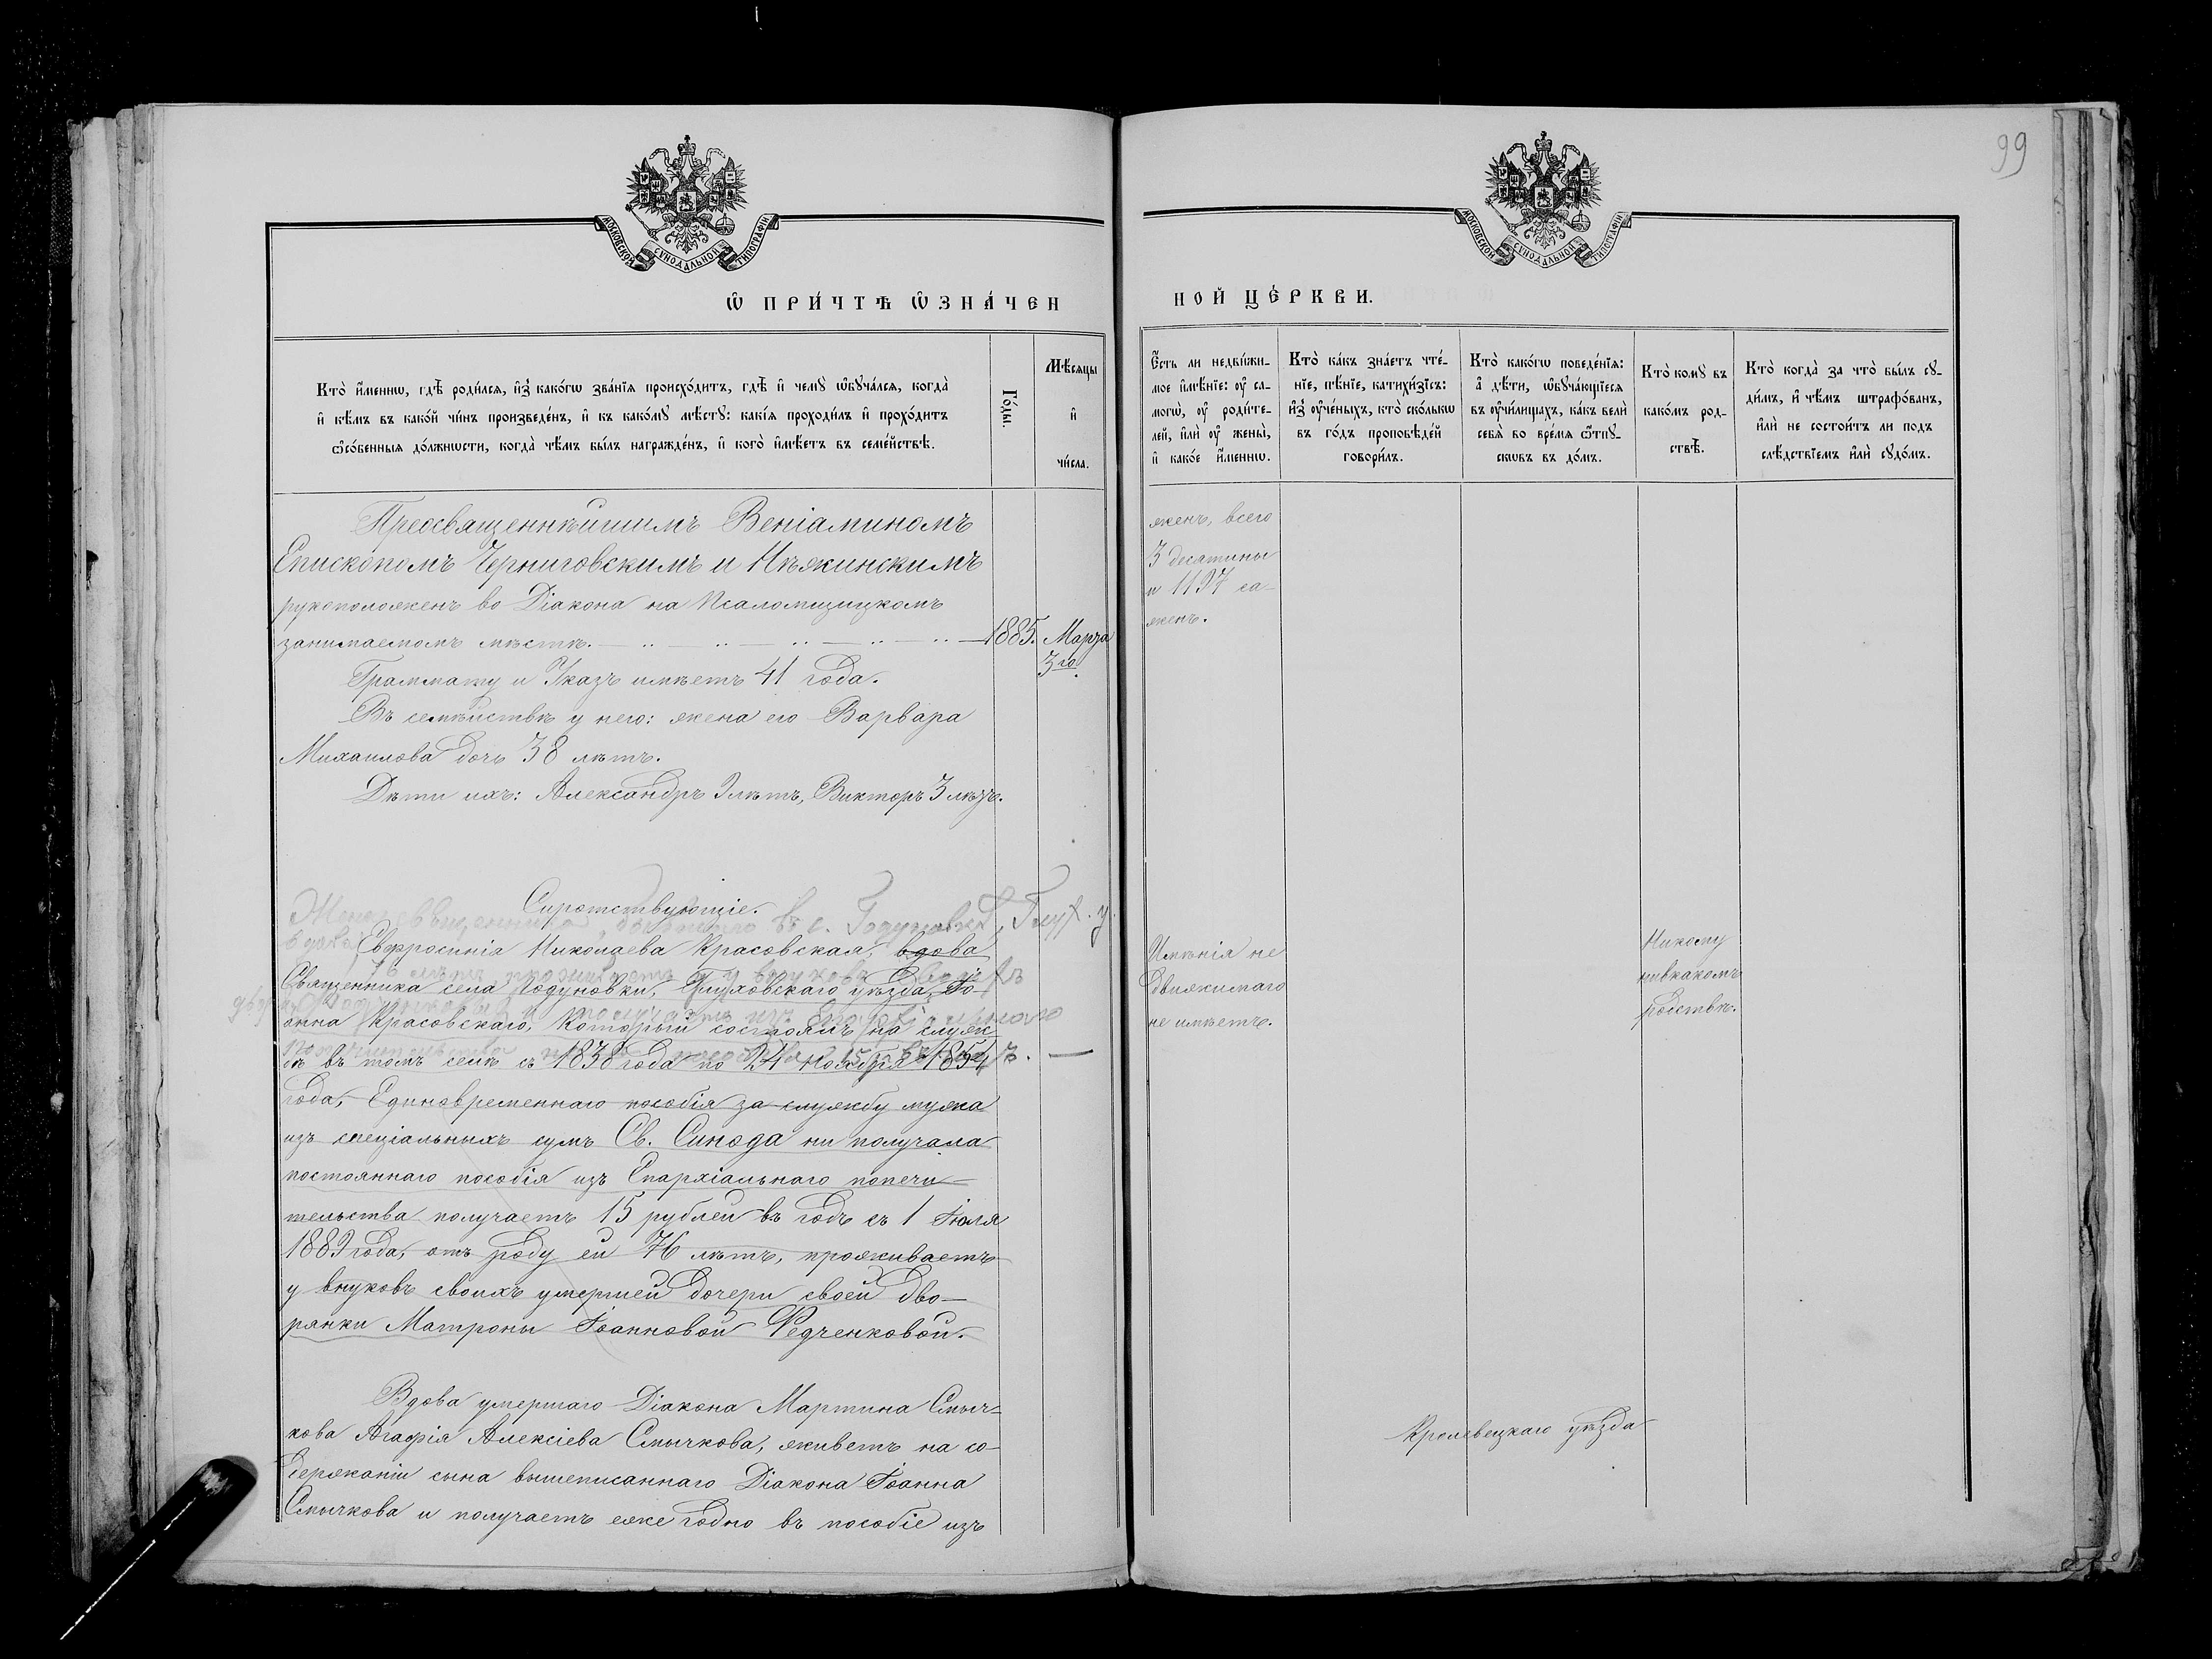 99
МОСКОВСКОЙ СѴНОДАЛЬНОЙ ТИПОГРАФІИ
МОСКОВСКОЙ СѴНОДАЛЬНОЙ ТИПОГРАФІИ
Ѡ҆ ПРИ́ЧТѢ Ѡ҆ЗНА́ЧЕН
НОЙ ЦЕ́РКВИ.
Кто̀ и҆́менно, гдѣ̀ роди́лсѧ, и҆з̾ како́гѡ зва́нїѧ происхо́дитъ, гдѣ̀ и҆ чемꙋ̀ ѡ҆бꙋча́лсѧ, когда̀
и҆ кѣ́мъ въ како́й чи́нъ произведе́нъ, и҆ къ како́мꙋ мѣ́стꙋ: какі́ѧ проходи́лъ и҆ прохо́дитъ
ѻ҆со́бенныѧ до́лжности, когда̀ чѣ́мъ бы́лъ награжде́нъ, и҆ кого̀ и҆мѣ́етъ въ семе́йствѣ.
Го́ды.
Мѣ́сѧцы
и҆
чи́сла.
Є҆́сть ли недви́жи-
мое и҆мѣ́нїе: оу҆ са-
могѡ̀, оу҆ роди́те-
лей, и҆лѝ оу҆ жены̀,
и҆ како́е и҆́менно.
Кто̀ ка́къ зна́етъ чте́-
нїе, пѣ́нїе, катихи́зїсъ:
и҆з̾ оу҆че́ныхъ, кто̀ ско́лькѡ
въ го́дъ проповѣ́дей
говори́лъ.
Кто̀ како́гѡ поведе́нїѧ:
а҆ дѣ́ти, ѡ҆бꙋча́ющїесѧ
въ оу҆чи́лищахъ, ка́къ велѝ
себѧ̀ во вре́мѧ ѿпꙋ-
сковъ въ до́мъ.
Кто̀ комꙋ̀ въ
како́мъ род-
ствѣ̀.
Кто̀ когда̀ за что̀ бы́лъ сꙋ-
ди́мъ, и҆ чѣ́мъ штрафо́ванъ,
и҆лѝ не состои́тъ ли подъ
слѣ́дствїемъ и҆лѝ сꙋдо́мъ.
Преосвященнѣйшимъ Веніаминомъ
Епископомъ Черниговскимъ и Нѣжинскимъ
рукоположенъ во Діакона на Псаломщицкомъ
занимаемомъ мѣстѣ. 1885. Марта
3го.
Граммату и Указъ имѣетъ 41 года.
Въ семействѣ у него: жена его Варвара
Михаилова дочь 38 лѣтъ.
Дѣти ихъ: Александръ 9 лѣтъ, Викторъ 3 лѣтъ.
жень, всего
3 десятины
и 1197 са-
жень.
Сиротствующіе.
въ с. Годуновкѣ, Глух. у.
Евфросинія Николаева Красовская, вдова
Священника села Годуновки, Глуховскаго уѣзда, Іо-
анна Красовскаго, Который состоялъ на служ-
бѣ въ томъ селѣ съ 1838 года по 24 ноября 1854
года, Единовременнаго пособія за службу мужа
изъ спеціальныхъ сумъ Св. Синода ни получала
постояннаго пособія изъ Епархіальнаго попечи-
тельства получаетъ 15 рублей въ годъ съ 1 Іюля
1889 года, отъ роду ей 76 лѣтъ, проживаетъ
у внуковъ своихъ умершей дочери своей дво-
рянки Матроны Іоанновой Федченковой.
Имѣнія не
движимаго
не имѣетъ.
Никому
нивкакомъ
родствѣ.
Вдова умершаго Діакона Мартина Смыч-
кова Агафія Алексіева Смычкова, живетъ на со-
держаніи сына вышеписаннаго Діакона Іоанна
Смычкова и получаетъ ежегодно въ пособіе изъ
Кролевецкаго уѣзда